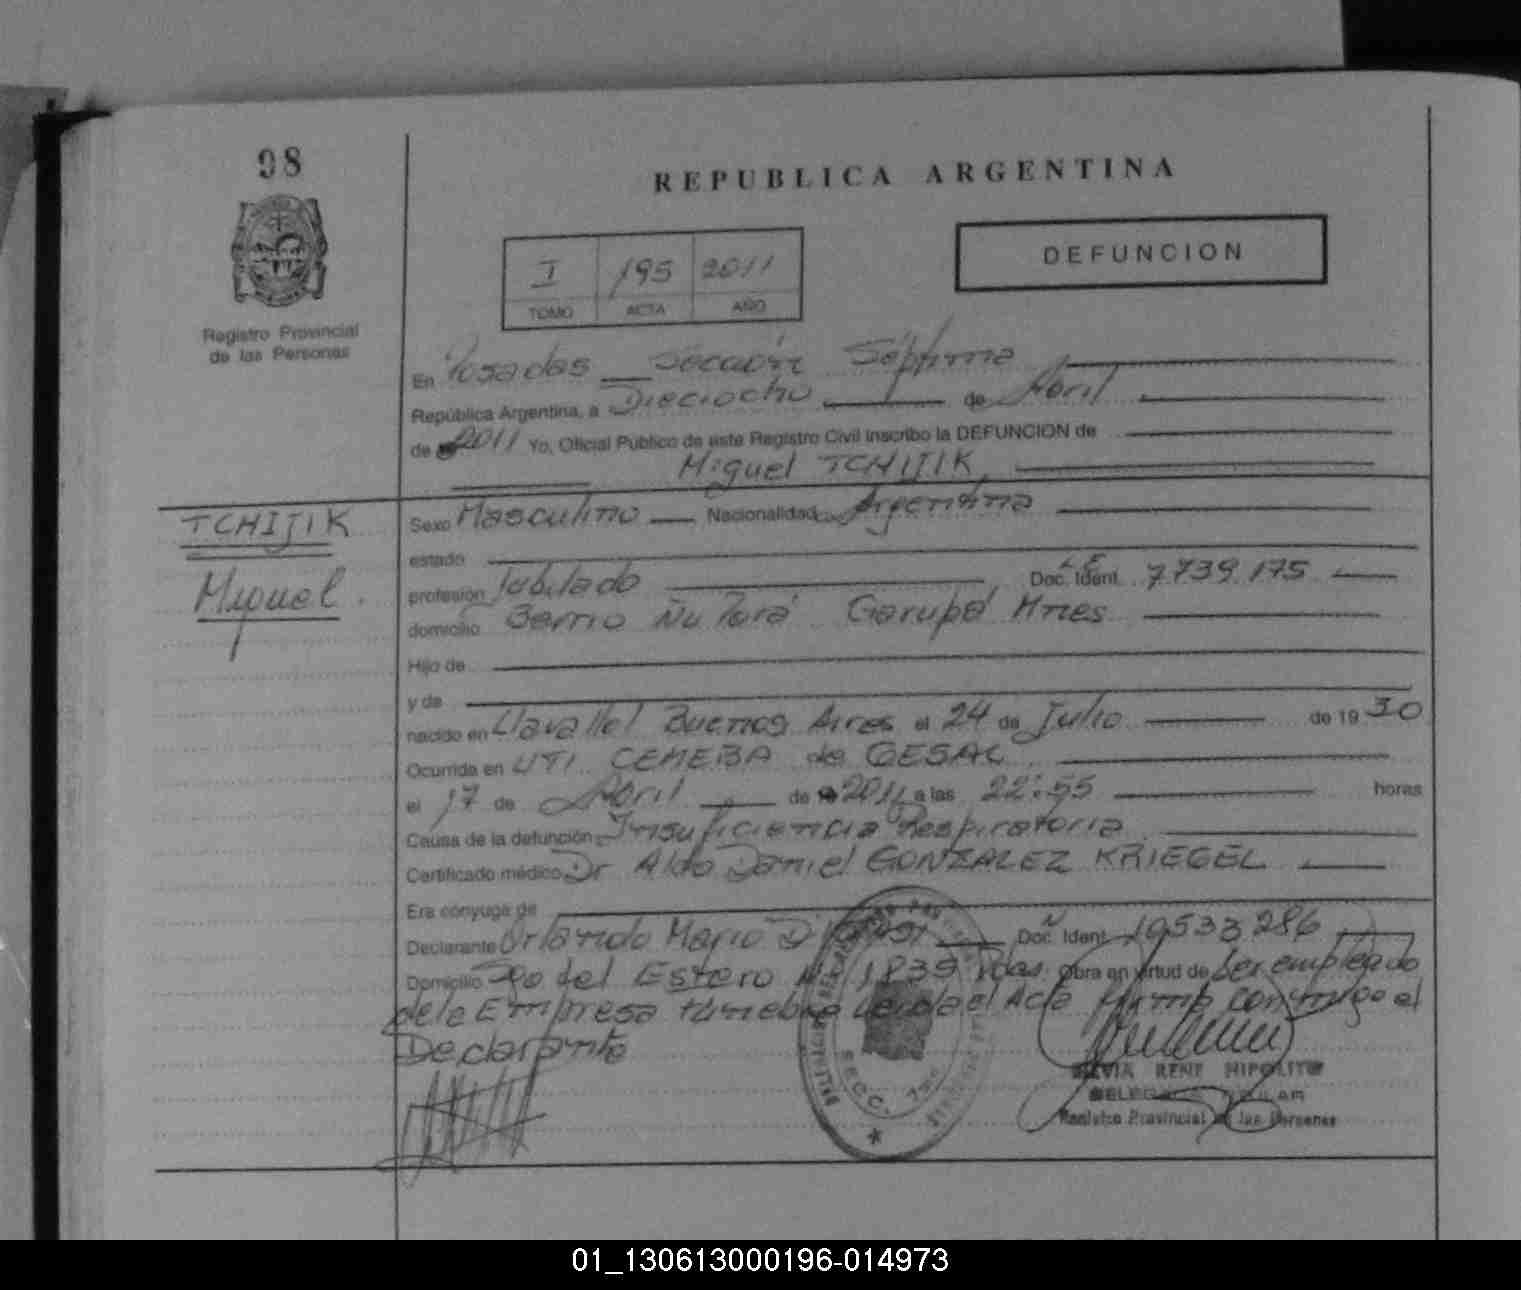 98
REPUBLICA ARGENTINA
DEFUNCION
I 195 2011
TOMO ACTA AÑO
Registro Provincial
de las Personas
En Posadas Sección Séptima
República Argentina, a Dieciocho de Abril
de 2011 Yo, Oficial Público de este Registro Civil inscribo la DEFUNCION de
Miguel TCHIJIK
TCHIJIK
Miguel.
Sexo Masculino Nacionalidad Argentina
estado
profesión Jubilado Doc. Ident. LE 7.739.175
domicilio Barrio Ñu Porá Garupá Mnes
Hijo de
y de
nacido en Llavallol Buenos Aires el 24 de Julio de 1930
Ocurrida en UTI CEMEBA de GESAL
el 17 de Abril de 2011 a las 22:55 horas
Causa de la defunción Insuficiencia Respiratoria
Certificado médico Dr Aldo Daniel GONZALEZ KRIEGEL
Era cónyuge de
Declarante Orlando Mario Doc. Ident. 10533286
Domicilio Sgo del Estero Nº 1839 Pdas. Obra en virtud de Ser empleado
de la Empresa fúnebre Leída el Acta firma conmigo el
Declarante
SECC. 7ma
SILVIA RENE HIPOLITO
DELEGADA TITULAR
Registro Provincial de las Personas
01_130613000196-014973